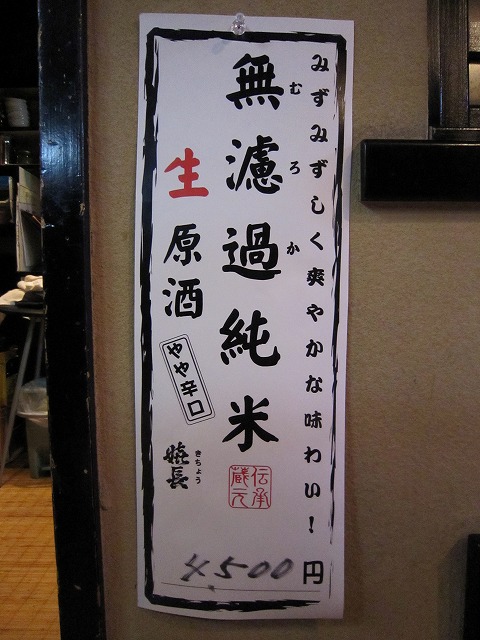 みずみずしく爽やかな味わい!
むろか
無濾過純米
伝承
蔵元
生原酒
やや辛口
きちょう
4500円